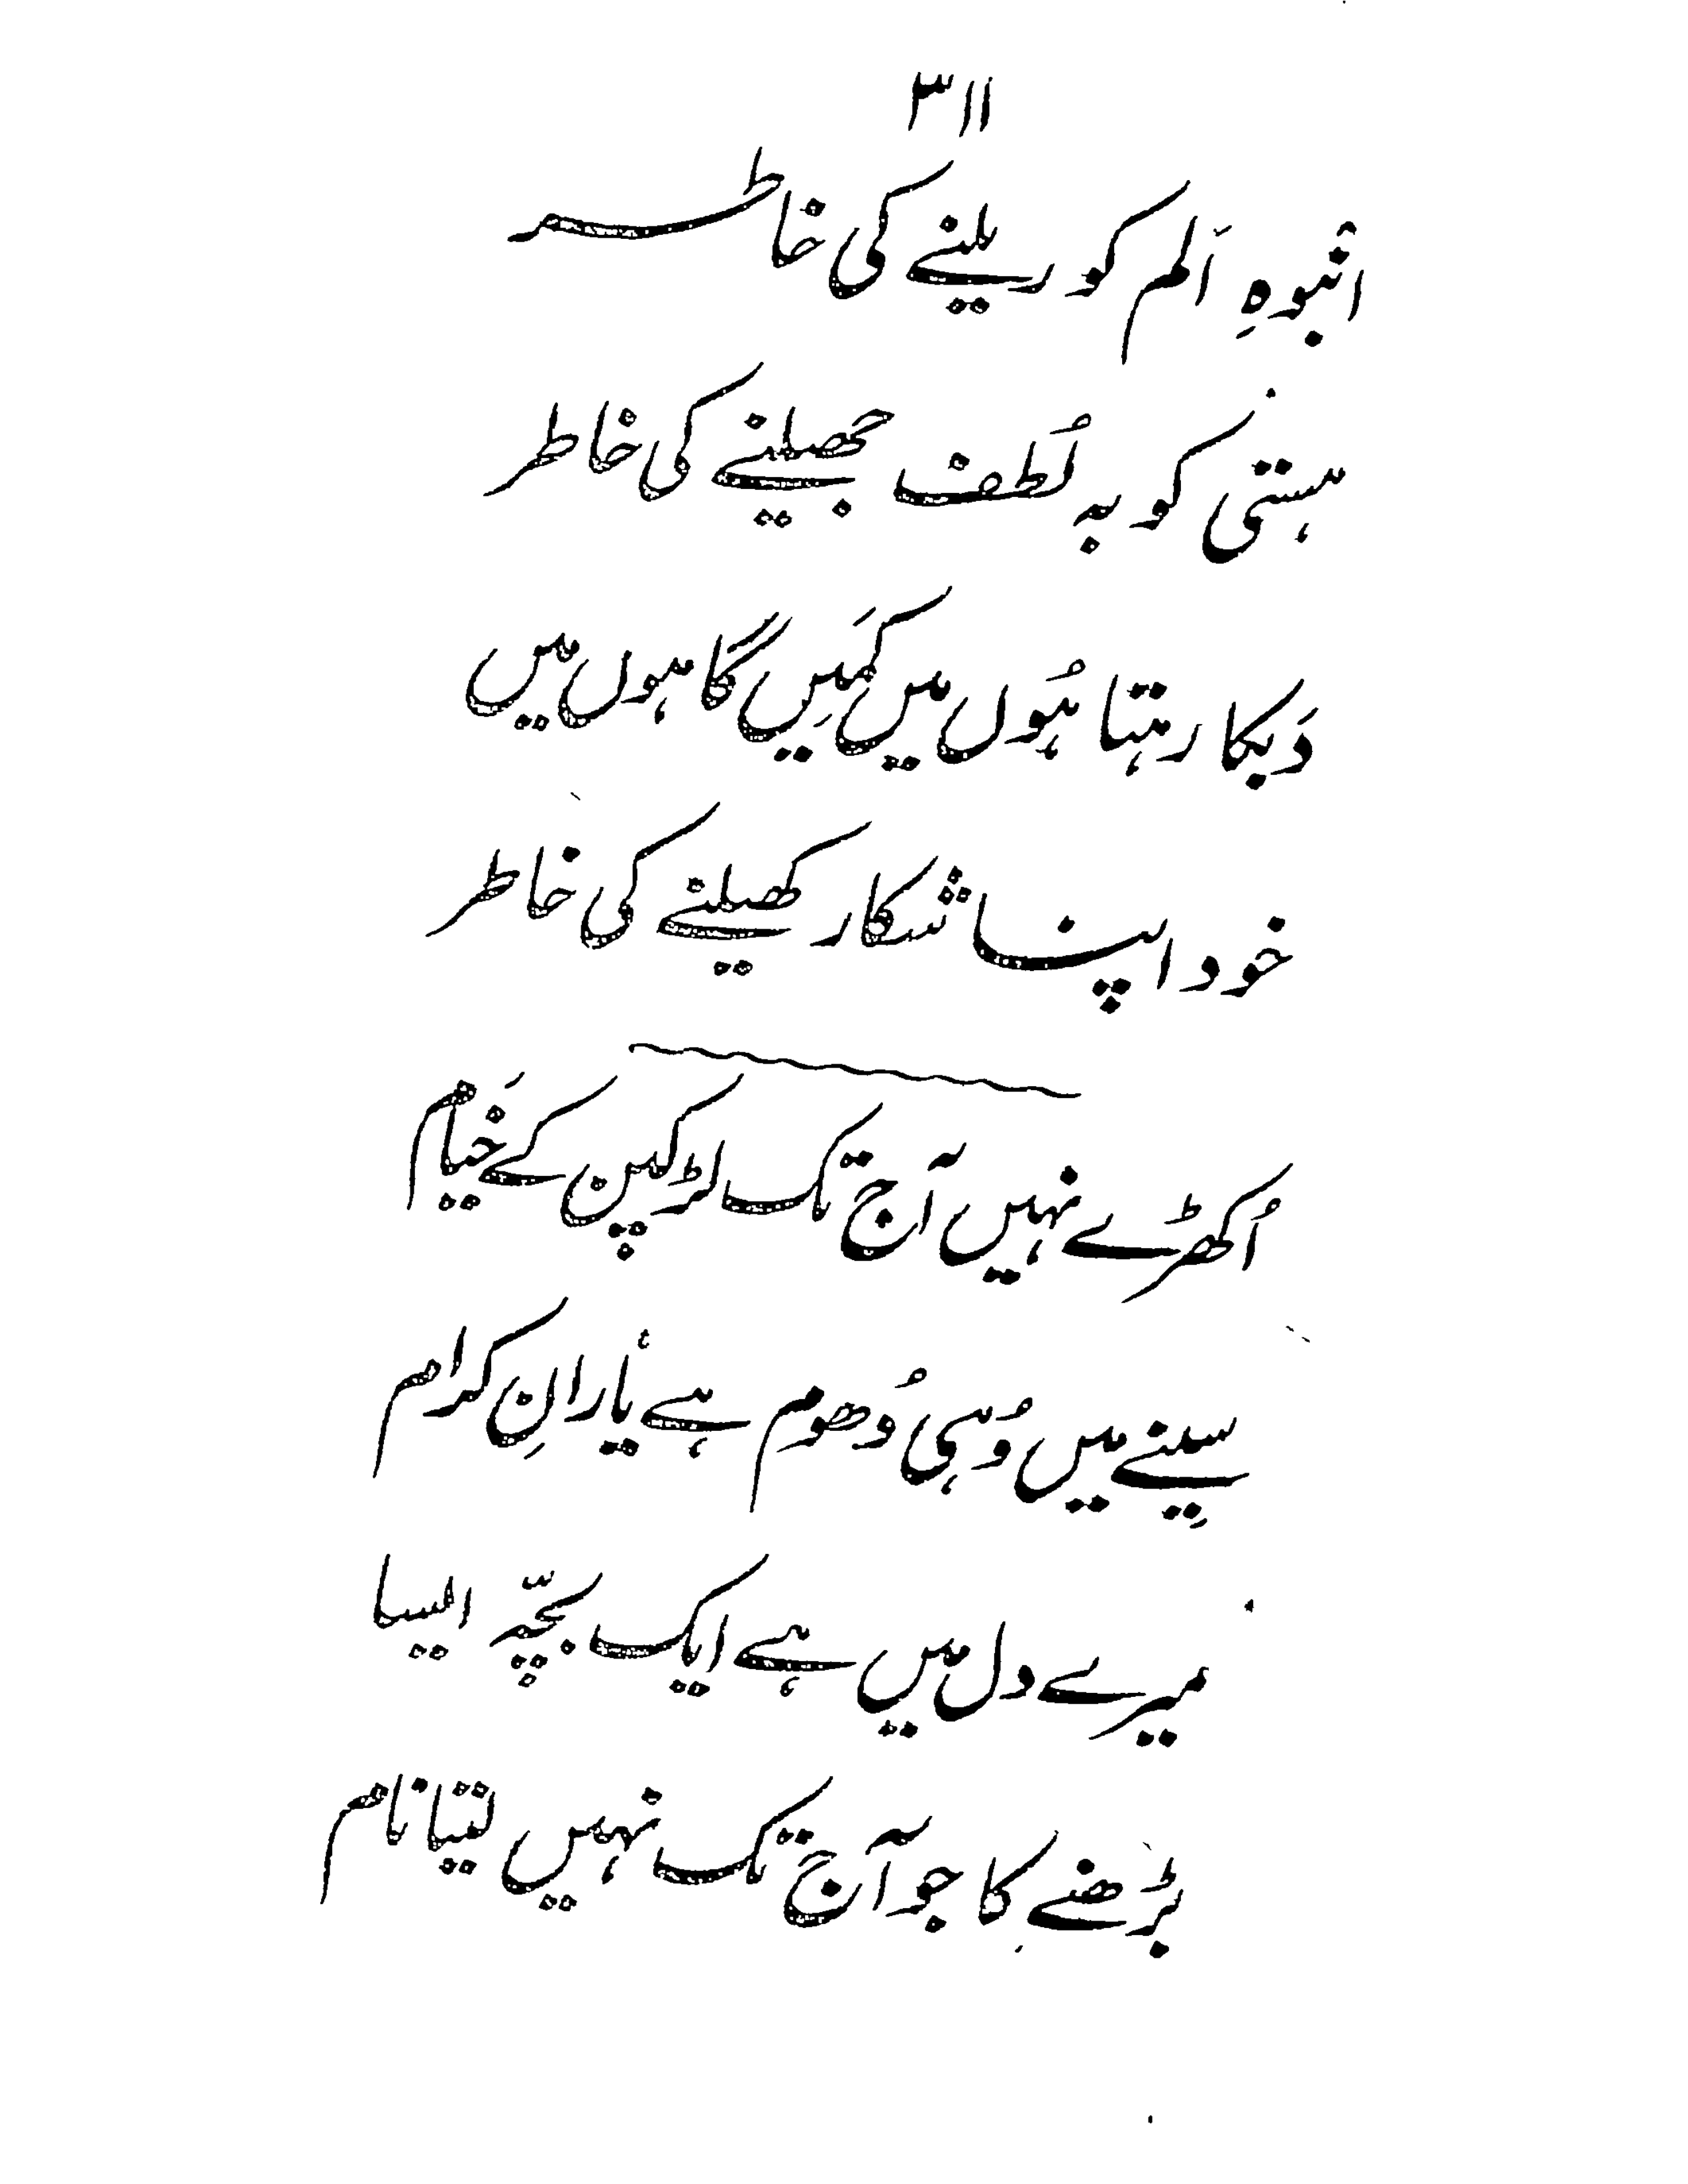 ۳۱۱
انبوہِ اَلم کو ریلنے کی خاطر
ہستی کو بہ لُطف جھیلنے کی خاطر
دَبکا رہتا ہُوں میں کَمِیں گاہوں میں
خود اپنا شکار کھیلنے کی خاطر
اُکھڑے نہیں آج تک لڑکپن کے خَیام
سِینے میں وُہی دُھوم ہے یارانِ کرام
میرے دل میں ہے ایک بچّہ ایسا
بڑھنے کا جو آج تک نہیں لیتا نام